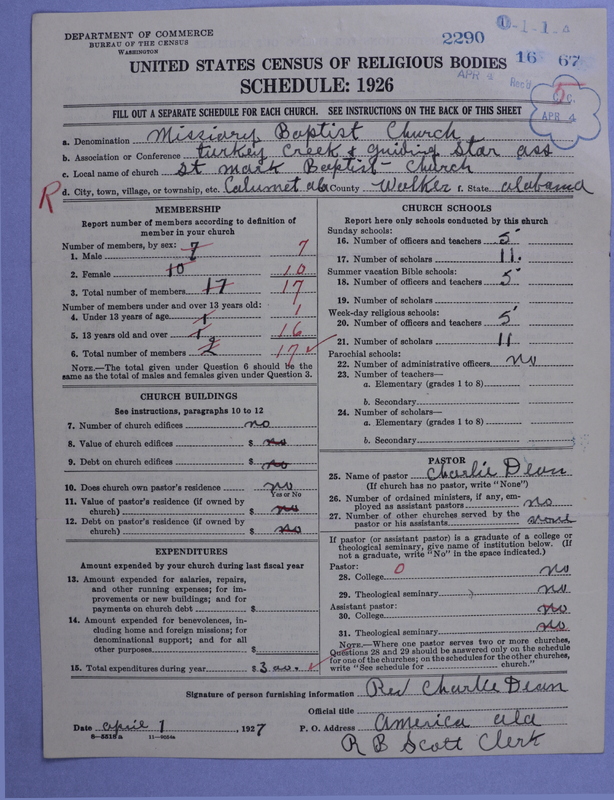 DEPARTMENT OF COMMERCE
BUREAU OF THE CENSUS
WASHINGTON
2290
1-1-
16 67
APR 4 Rec'd
APR 4
UNITED STATES CENSUS OF RELIGIOUS BODIES
SCHEDULE: 1926
FILL OUT A SEPARATE SCHEDULE FOR EACH CHURCH. SEE INSTRUCTIONS ON THE BACK OF THIS SHEET
a. Denomination Missiary Baptist Church
b. Association or Conference turkey Creek & guiding Star ass
c. Local name of church St mark Baptist Church
R d. City, town, village, or township, etc. Calumet ala County Walker f. State alabama
MEMBERSHIP
Report number of members according to definition of member in your church
Number of members, by sex:
1. Male 7 7
2. Female 10 10
3. Total number of members 17 17
Number of members under and over 13 years old:
4. Under 13 years of age 1 1
5. 13 years old and over 1 16
6. Total number of members 2 17
NOTE.—The total given under Question 6 should be the same as the total of males and females given under Question 3.
CHURCH BUILDINGS
See instructions, paragraphs 10 to 12
7. Number of church edifices no
8. Value of church edifices $ no
9. Debt on church edifices $ no
10. Does church own pastor's residence no
Yes or No
11. Value of pastor's residence (if owned by church) $ no
12. Debt on pastor's residence (if owned by church) $ no
EXPENDITURES
Amount expended by your church during last fiscal year
13. Amount expended for salaries, repairs, and other running expenses; for improvements or new buildings; and for payments on church debt $
14. Amount expended for benevolences, including home and foreign missions; for denominational support; and for all other purposes $
15. Total expenditures during year $ 3 00.
CHURCH SCHOOLS
Report here only schools conducted by this church
Sunday schools:
16. Number of officers and teachers 5
17. Number of scholars 11.
Summer vacation Bible schools:
18. Number of officers and teachers 5
19. Number of scholars
Week-day religious schools:
20. Number of officers and teachers 5
21. Number of scholars 11
Parochial schools:
22. Number of administrative officers no
23. Number of teachers—
a. Elementary (grades 1 to 8)
b. Secondary
24. Number of scholars—
a. Elementary (grades 1 to 8)
b. Secondary
PASTOR
25. Name of pastor Charlie Dean
(If church has no pastor, write "None")
26. Number of ordained ministers, if any, employed as assistant pastors no
27. Number of other churches served by the pastor or his assistants none
If pastor (or assistant pastor) is a graduate of a college or theological seminary, give name of institution below. (If not a graduate, write "No" in the space indicated.)
Pastor: 0
28. College no
29. Theological seminary no
Assistant pastor:
30. College no
31. Theological seminary no
NOTE.—Where one pastor serves two or more churches, Questions 28 and 29 should be answered only on the schedule for one of the churches; on the schedules for the other churches, write "See schedule for church."
Signature of person furnishing information Rev Charlie Dean
Official title
Date april 1, 1927 P. O. Address America ala
8-5518a 11-9554a
R B Scott Clerk